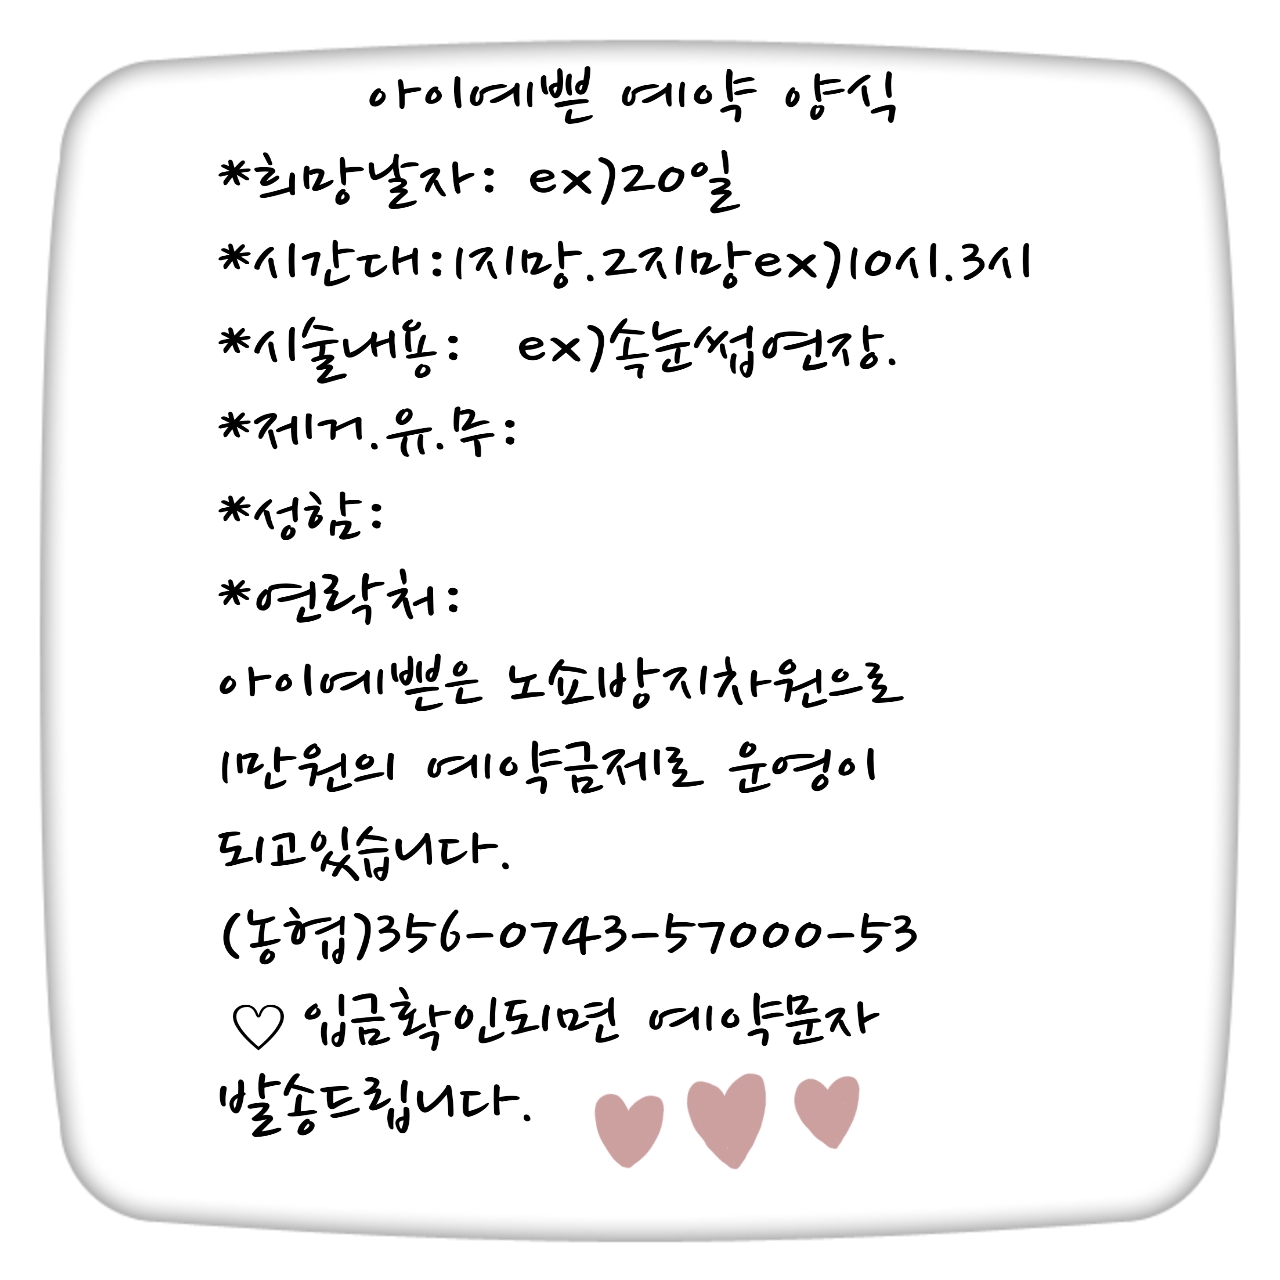 아이예쁜 예약 양식
*희망날자: ex)20일
*시간대:1지망.2지망ex)10시.3시
*시술내용: ex)속눈썹연장.
*제거.유.무:
*성함:
*연락처:
아이예쁜은 노쇼방지차원으로
1만원의 예약금제로 운영이
되고있습니다.
(농협)356-0743-57000-53
♡ 입금확인되면 예약문자
발송드립니다.